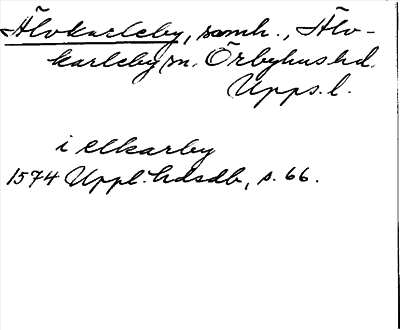 Älvkarleby, samh., Älv-
karleby sn. Örbyhus hd.
Upps. l.
i elkarby
1574 Uppl. hdsdb, s. 66.